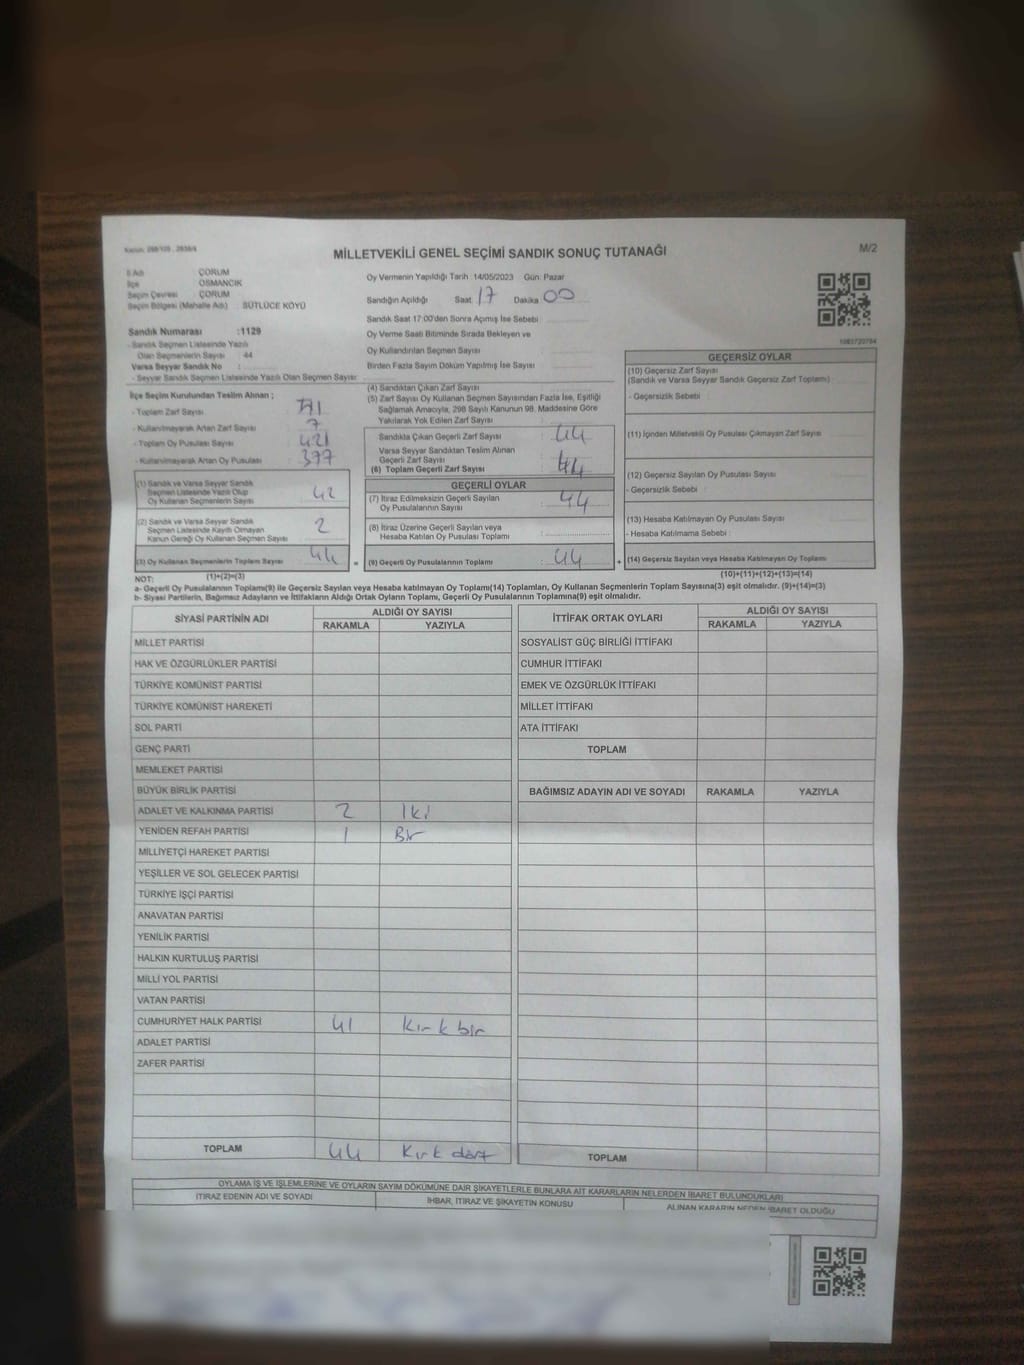 MİLLETVEKİLİ GENEL SEÇİMİ SANDIK SONUÇ TUTANAĞI
M/2
İl Adı : ÇORUM
İlçe : OSMANCIK
Seçim Çevresi : ÇORUM
Seçim Bölgesi (Mahalle Adı) : SÜTLÜCE KÖYÜ
Sandık Numarası :1129
- Sandık Seçmen Listesinde Yazılı
Olan Seçmenlerin Sayısı : 44
Varsa Seyyar Sandık No :
- Seyyar Sandık Seçmen Listesinde Yazılı Olan Seçmen Sayısı :
Oy Vermenin Yapıldığı Tarih :14/05/2023 Gün: Pazar
Sandığın Açıldığı Saat 17 Dakika 00
Sandık Saat 17:00'den Sonra Açılmış İse Sebebi :
Oy Verme Saati Bitiminde Sırada Bekleyen ve
Oy Kullandırılan Seçmen Sayısı
Birden Fazla Sayım Döküm Yapılmış İse Sayısı
İlçe Seçim Kurulundan Teslim Alınan ;
- Toplam Zarf Sayısı :
- Kullanılmayarak Artan Zarf Sayısı : 7
- Toplam Oy Pusulası Sayısı : 421
- Kullanılmayarak Artan Oy Pusulası : 377
(1) Sandık ve Varsa Seyyar Sandık
Seçmen Listesinde Yazılı Olup
Oy Kullanan Seçmenlerin Sayısı : 42
(2) Sandık ve Varsa Seyyar Sandık
Seçmen Listesinde Kayıtlı Olmayan
Kanun Gereği Oy Kullanan Seçmen Sayısı : 2
(3) Oy Kullanan Seçmenlerin Toplam Sayısı : 44
(4) Sandıktan Çıkan Zarf Sayısı
(5) Zarf Sayısı Oy Kullanan Seçmen Sayısından Fazla İse, Eşitliği
Sağlamak Amacıyla, 298 Sayılı Kanunun 98. Maddesine Göre
Yakılarak Yok Edilen Zarf Sayısı
Sandıkta Çıkan Geçerli Zarf Sayısı : 44
Varsa Seyyar Sandıktan Teslim Alınan
Geçerli Zarf Sayısı
(6) Toplam Geçerli Zarf Sayısı : 44
GEÇERLİ OYLAR
(7) İtiraz Edilmeksizin Geçerli Sayılan
Oy Pusulalarının Sayısı : 44
(8) İtiraz Üzerine Geçerli Sayılan veya
Hesaba Katılan Oy Pusulası Toplamı
= (9) Geçerli Oy Pusulalarının Toplamı : 44
GEÇERSİZ OYLAR
(10) Geçersiz Zarf Sayısı
(Sandık ve Varsa Seyyar Sandık Geçersiz Zarf Toplamı) :
- Geçersizlik Sebebi :
(11) İçinden Milletvekili Oy Pusulası Çıkmayan Zarf Sayısı
(12) Geçersiz Sayılan Oy Pusulası Sayısı
- Geçersizlik Sebebi :
(13) Hesaba Katılmayan Oy Pusulası Sayısı
- Hesaba Katılmama Sebebi :
+ (14) Geçersiz Sayılan veya Hesaba Katılmayan Oy Toplamı
NOT: (1)+(2)=(3)
(10)+(11)+(12)+(13)=(14)
a- Geçerli Oy Pusulalarının Toplamı(9) ile Geçersiz Sayılan veya Hesaba katılmayan Oy Toplamı(14) Toplamları, Oy Kullanan Seçmenlerin Toplam Sayısına(3) eşit olmalıdır. (9)+(14)=(3)
b- Siyasi Partilerin, Bağımsız Adayların ve İttifakların Aldığı Ortak Oyların Toplamı, Geçerli Oy Pusulalarının Toplamına(9) eşit olmalıdır.
SİYASİ PARTİNİN ADI
ALDIĞI OY SAYISI
RAKAMLA YAZIYLA
MİLLET PARTİSİ
HAK VE ÖZGÜRLÜKLER PARTİSİ
TÜRKİYE KOMÜNİST PARTİSİ
TÜRKİYE KOMÜNİST HAREKETİ
SOL PARTİ
GENÇ PARTİ
MEMLEKET PARTİSİ
BÜYÜK BİRLİK PARTİSİ
ADALET VE KALKINMA PARTİSİ 2 İki
YENİDEN REFAH PARTİSİ 1 Bir
MİLLİYETÇİ HAREKET PARTİSİ
YEŞİLLER VE SOL GELECEK PARTİSİ
TÜRKİYE İŞÇİ PARTİSİ
ANAVATAN PARTİSİ
YENİLİK PARTİSİ
HALKIN KURTULUŞ PARTİSİ
MİLLİ YOL PARTİSİ
VATAN PARTİSİ
CUMHURİYET HALK PARTİSİ 41 Kırk bir
ADALET PARTİSİ
ZAFER PARTİSİ
TOPLAM 44 Kırk dört
İTTİFAK ORTAK OYLARI
ALDIĞI OY SAYISI
RAKAMLA YAZIYLA
SOSYALİST GÜÇ BİRLİĞİ İTTİFAKI
CUMHUR İTTİFAKI
EMEK VE ÖZGÜRLÜK İTTİFAKI
MİLLET İTTİFAKI
ATA İTTİFAKI
TOPLAM
BAĞIMSIZ ADAYIN ADI VE SOYADI RAKAMLA YAZIYLA
TOPLAM
OYLAMA İŞ VE İŞLEMLERİNE VE OYLARIN SAYIM DÖKÜMÜNE DAİR ŞİKAYETLERLE BUNLARA AİT KARARLARIN NELERDEN İBARET BULUNDUKLARI
İTİRAZ EDENİN ADI VE SOYADI
İHBAR, İTİRAZ VE ŞİKAYETİN KONUSU
ALINAN KARARIN NEDEN İBARET OLDUĞU